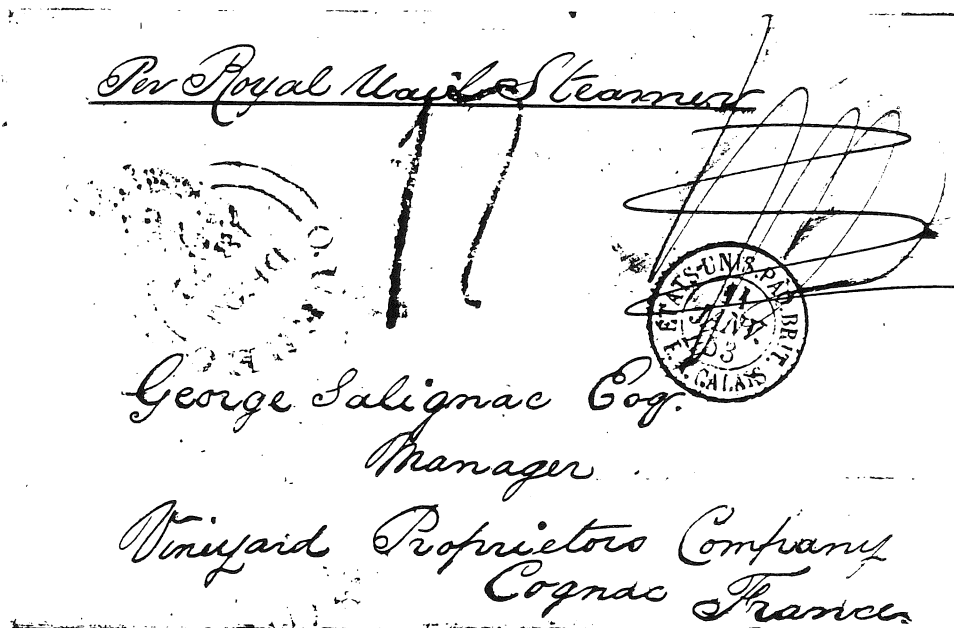 Per Royal Mail Steamer
11
ÉTATS-UNIS. PAQ. BRIT.
11
JANV.
53
CALAIS
George Salignac Esq.
Manager
Vineyard Proprietors Company
Cognac France